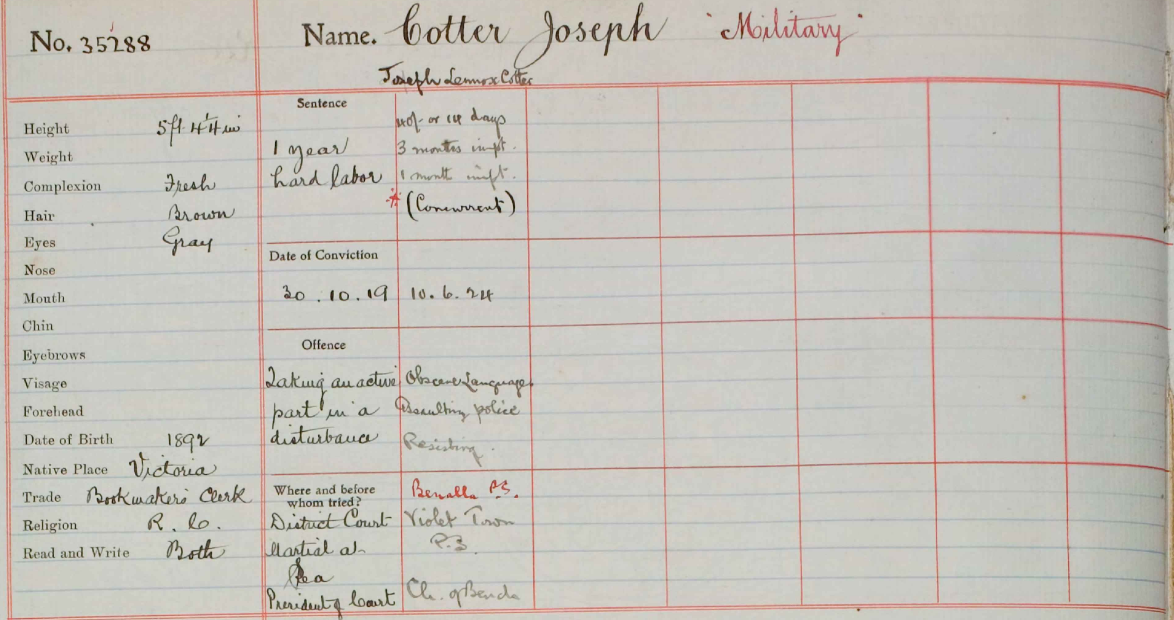 No. 35288
Name. Cotter Joseph "Military"
Joseph Lennox Cotter
Height 5ft 4¼ in
Weight
Complexion Fresh
Hair Brown
Eyes Gray
Nose
Month
Chin
Eyebrows
Visage
Forehead
Date of Birth 1892
Native Place Victoria
Trade Bookmakers Clerk
Religion R. C.
Read and Write Both
Sentence
1 year
hard labor
40/- or 14 days
3 months impt.
1 month impt.
* (Concurrent)
Date of Conviction
30.10.19
10.6.24
Offence
Taking an active
part in a
disturbance
Obscene Language
Assaulting police
Resisting.
Where and before
whom tried?
District Court
Martial at
Sea
President of Court
Benalla P.S.
Violet Town
P.S.
Ch. of Bench